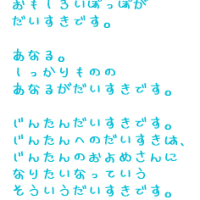 おもしろいぽっぽが
だいすきです。
あなる。
しっかりものの
あなるがだいすきです。
じんたんだいすきです。
じんたんへのだいすきは、
じんたんのおよめさんに
なりたいなっていう
そういうだいすきです。